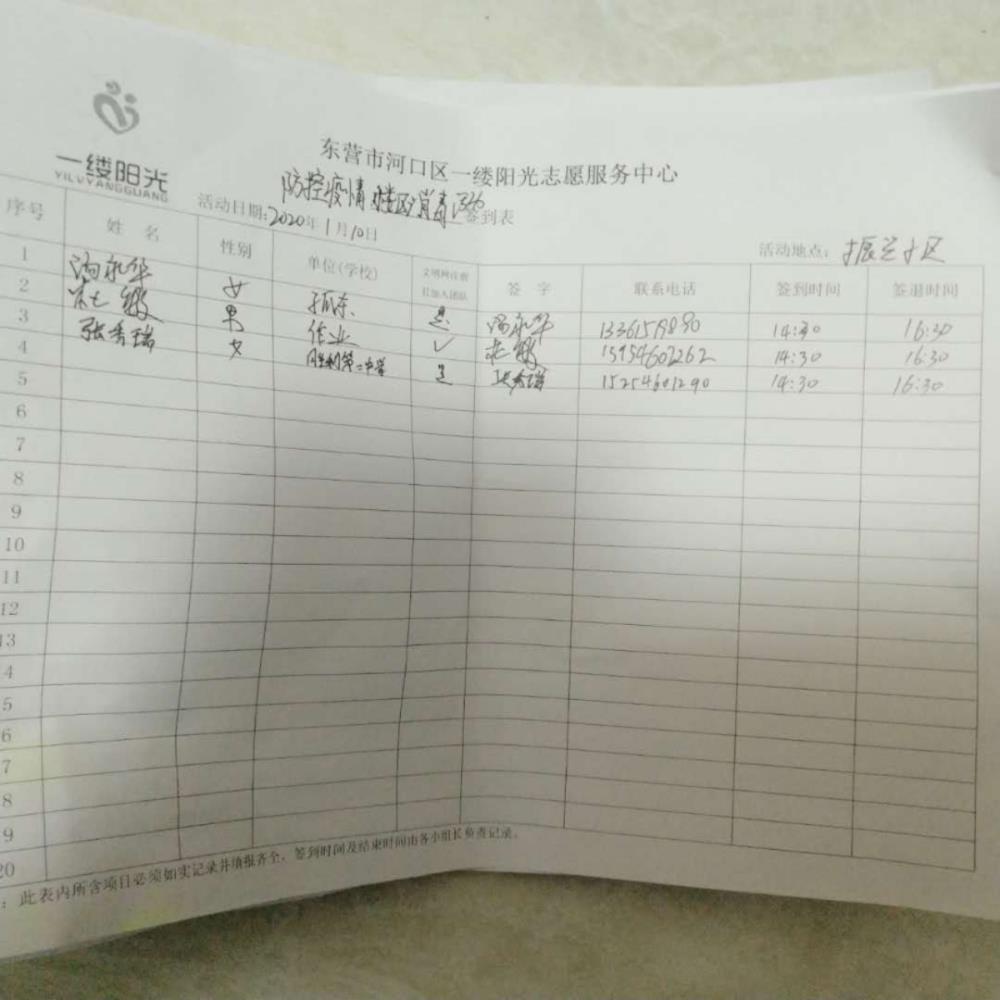 一缕阳光
YILVYANGGUANG
东营市河口区一缕阳光志愿服务中心
防控疫情 楼区消毒 活动 签到表
活动日期:2020年1月10日
活动地点: 振兴小区
序号 姓名 性别 单位(学校) 签字 联系电话 签到时间 签退时间
1 冯永华 女 孤东 是 冯永华 14:30 16:30
2 男 作业 ✓ 15954602262 14:30 16:30
3 张秀瑞 女 胜利第二中学 是 张秀瑞 15254601290 14:30 16:30
4
5
6
7
8
9
10
11
12
13
4
5
6
7
8
9
20
:此表内所含项目必须如实记录并填报齐全,签到时间及结束时间由各小组长负责记录。